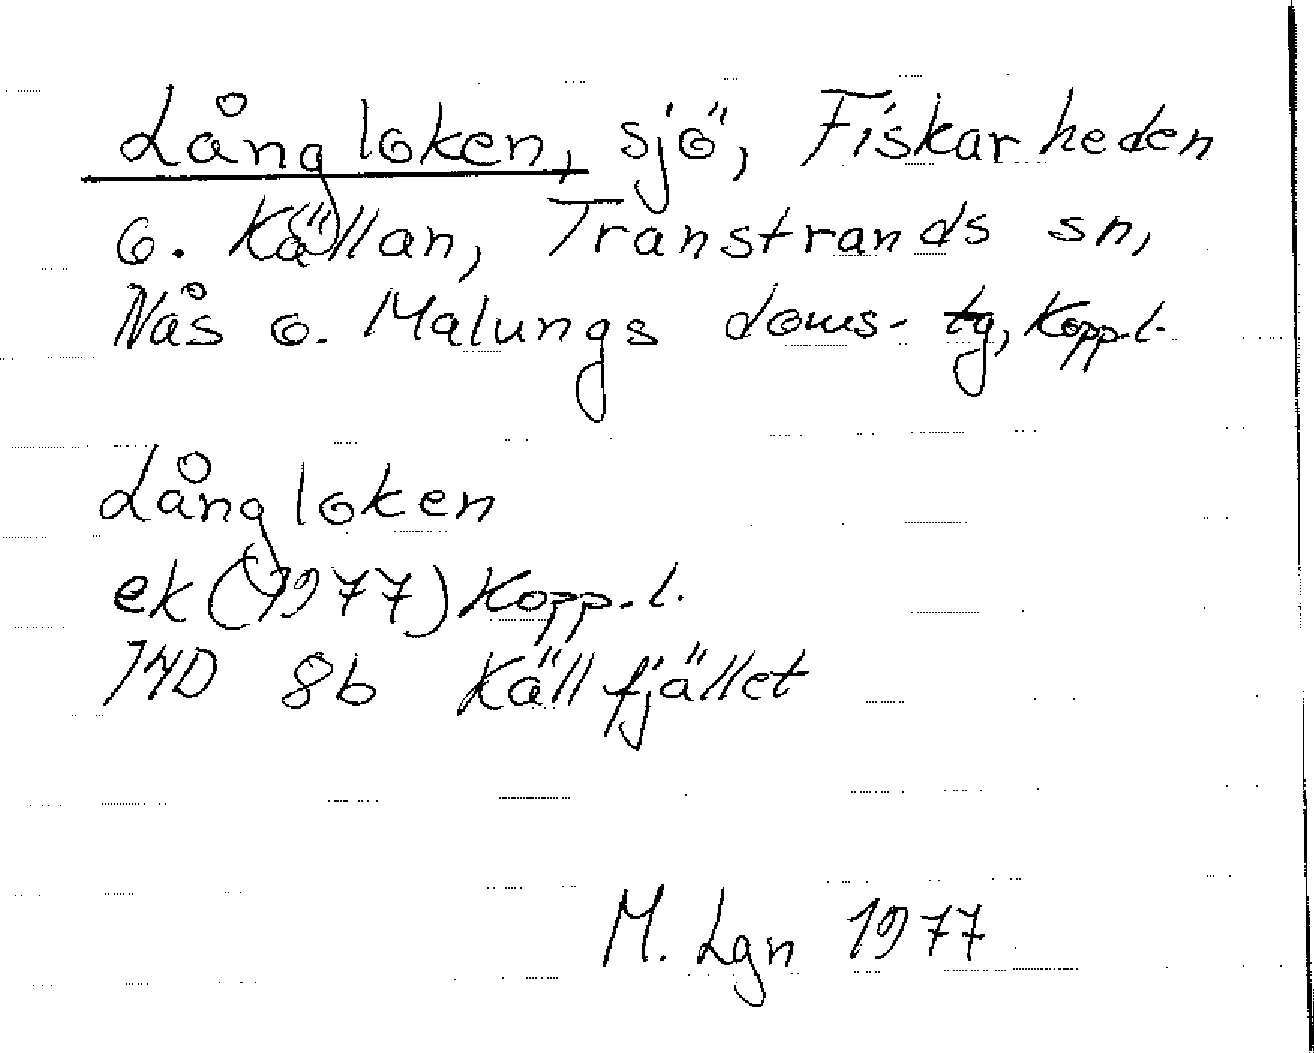 Långloken, sjö, Fiskarheden
o. Källan, Transtrands sn,
Nås o. Malungs doms- tg, Kopp.l.
Långloken
ek (1977) Kopp.l.
14D 8b Källfjället
M. Lgn 1977